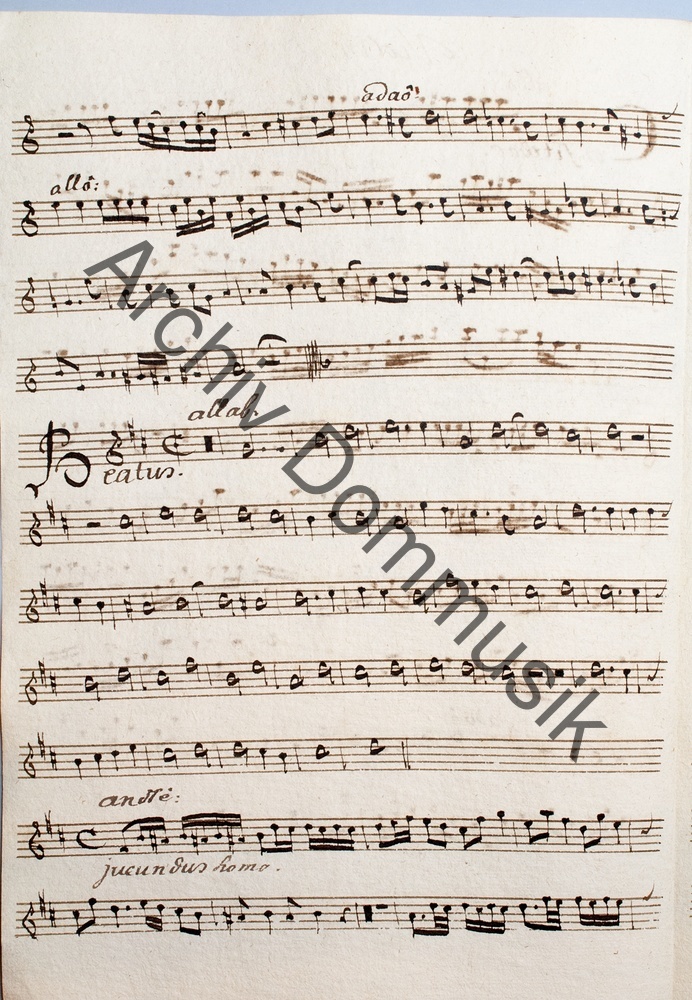 adaô:
allô:
allab.
Beatus.
andtè:
jucundus homo.
Archiv Dommusik